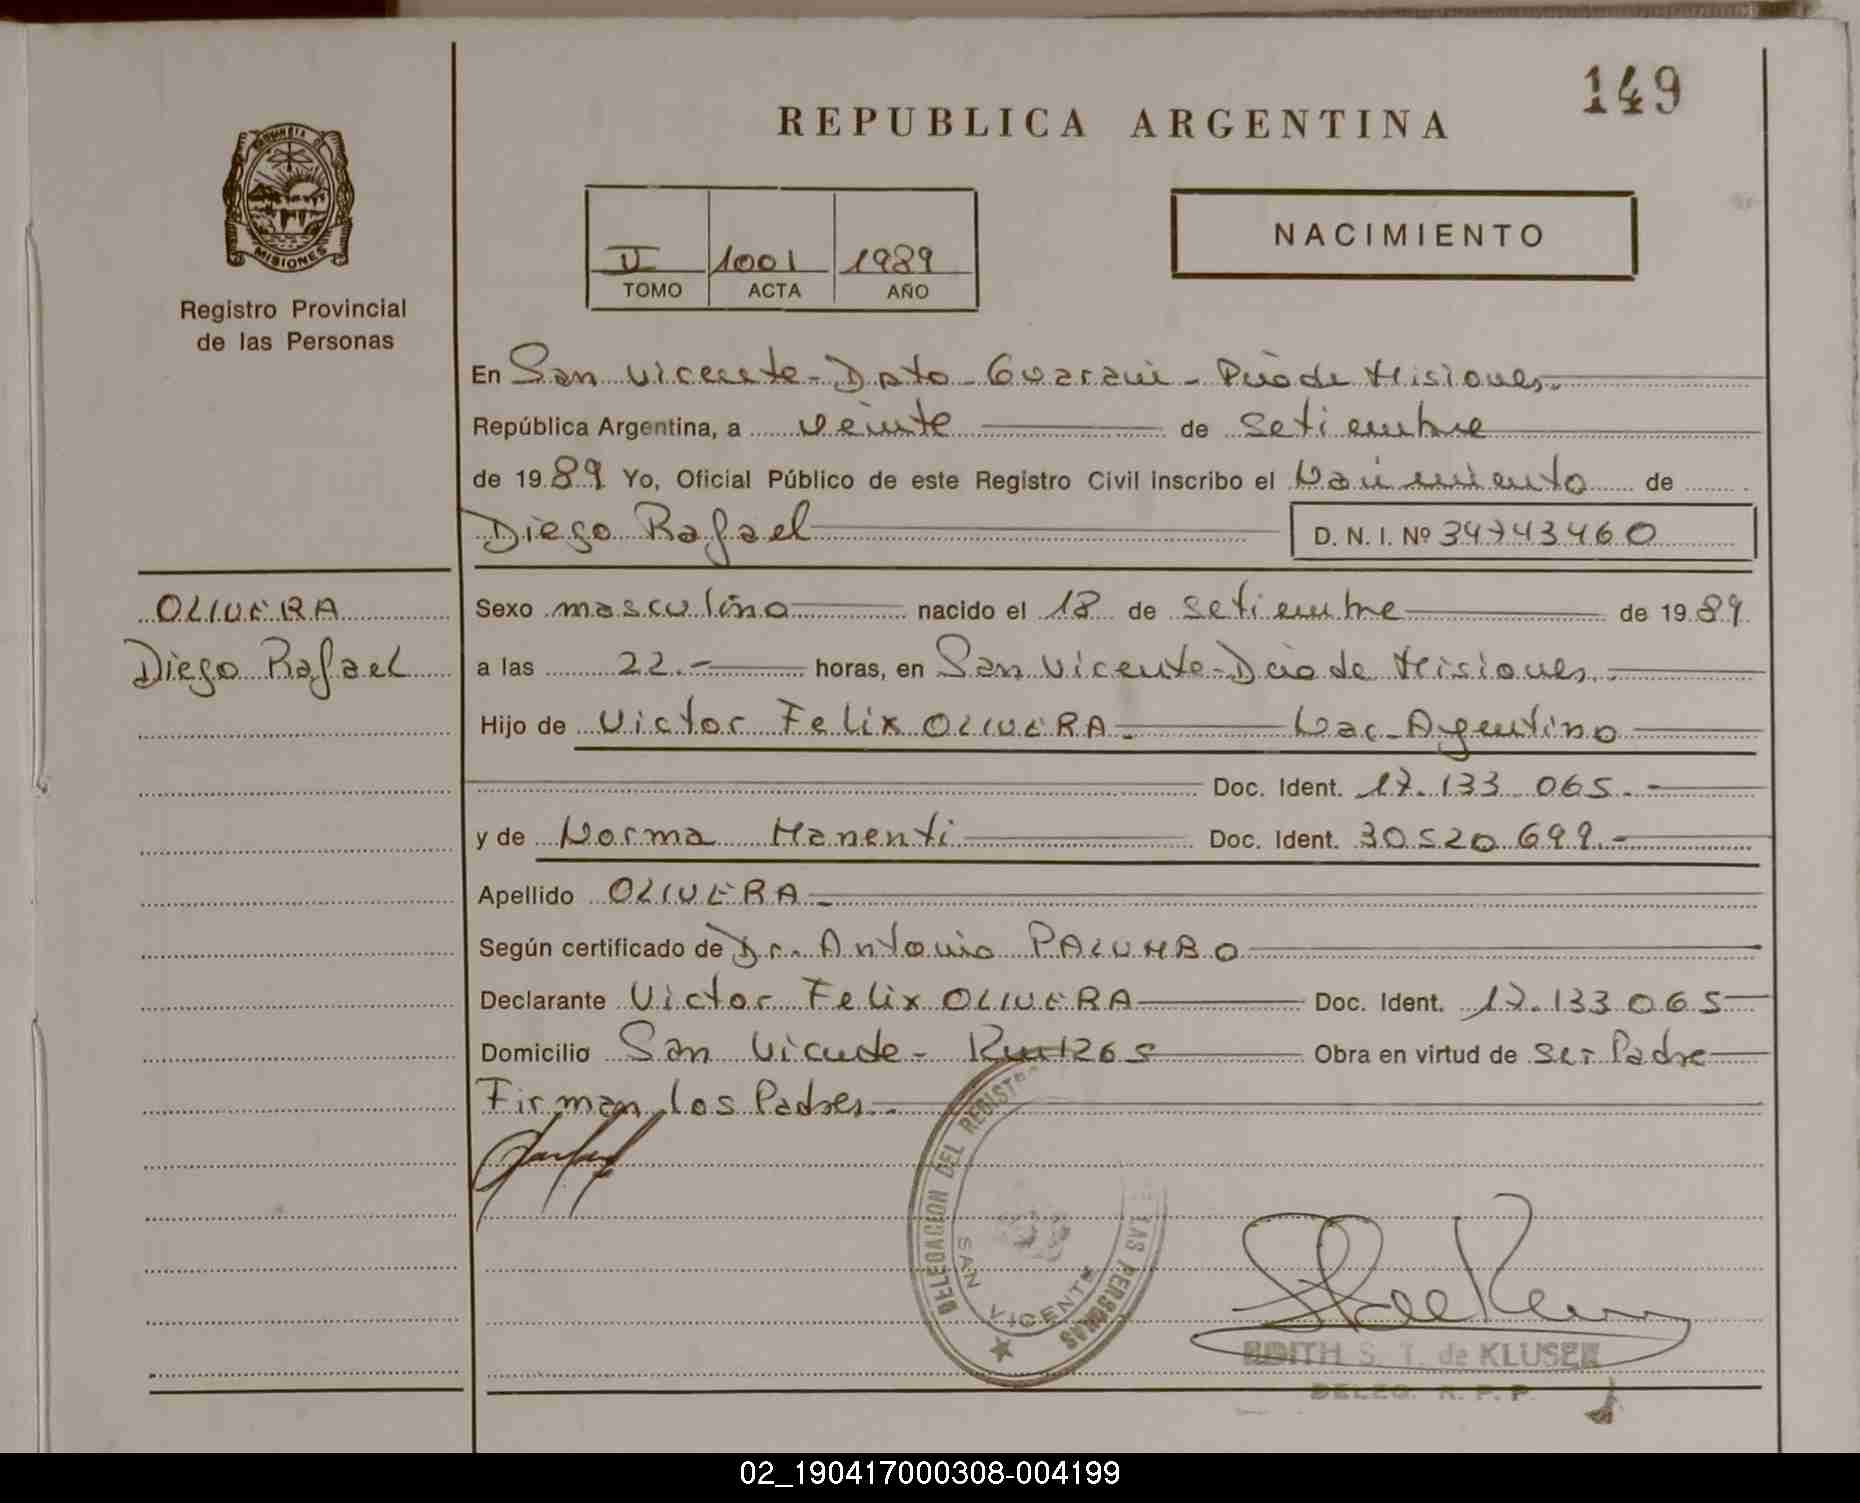 149
REPUBLICA ARGENTINA
PROVINCIA
MISIONES
Registro Provincial
de las Personas
II 1001 1989
TOMO ACTA AÑO
NACIMIENTO
En San Vicente - Dpto Guaraní - Pciade Misiones.
República Argentina, a veinte de Setiembre
de 1989 Yo, Oficial Público de este Registro Civil inscribo el Nacimiento de
Diego Rafael D. N. I. Nº 34743460
OLIVERA
Diego Rafael
Sexo masculino nacido el 18 de Setiembre de 1989
a las 22.- horas, en San Vicente - Pciade Misiones.
Hijo de Victor Felix OLIVERA - Nac. Argentino
Doc. Ident. 17.133.065.-
y de Norma Manenti Doc. Ident. 30520699.-
Apellido OLIVERA -
Según certificado de Dr. Antonio PALUMBO
Declarante Victor Felix OLIVERA Doc. Ident. 17.133065
Domicilio San Vicente - 1265 Obra en virtud de Ser Padre
Firman los Padres.
DELEGACION DEL REGISTRO LAS PERSONAS
SAN VICENTE
EDITH S. T. de KLUSER
DELEG. R. P. P.
02_190417000308-004199